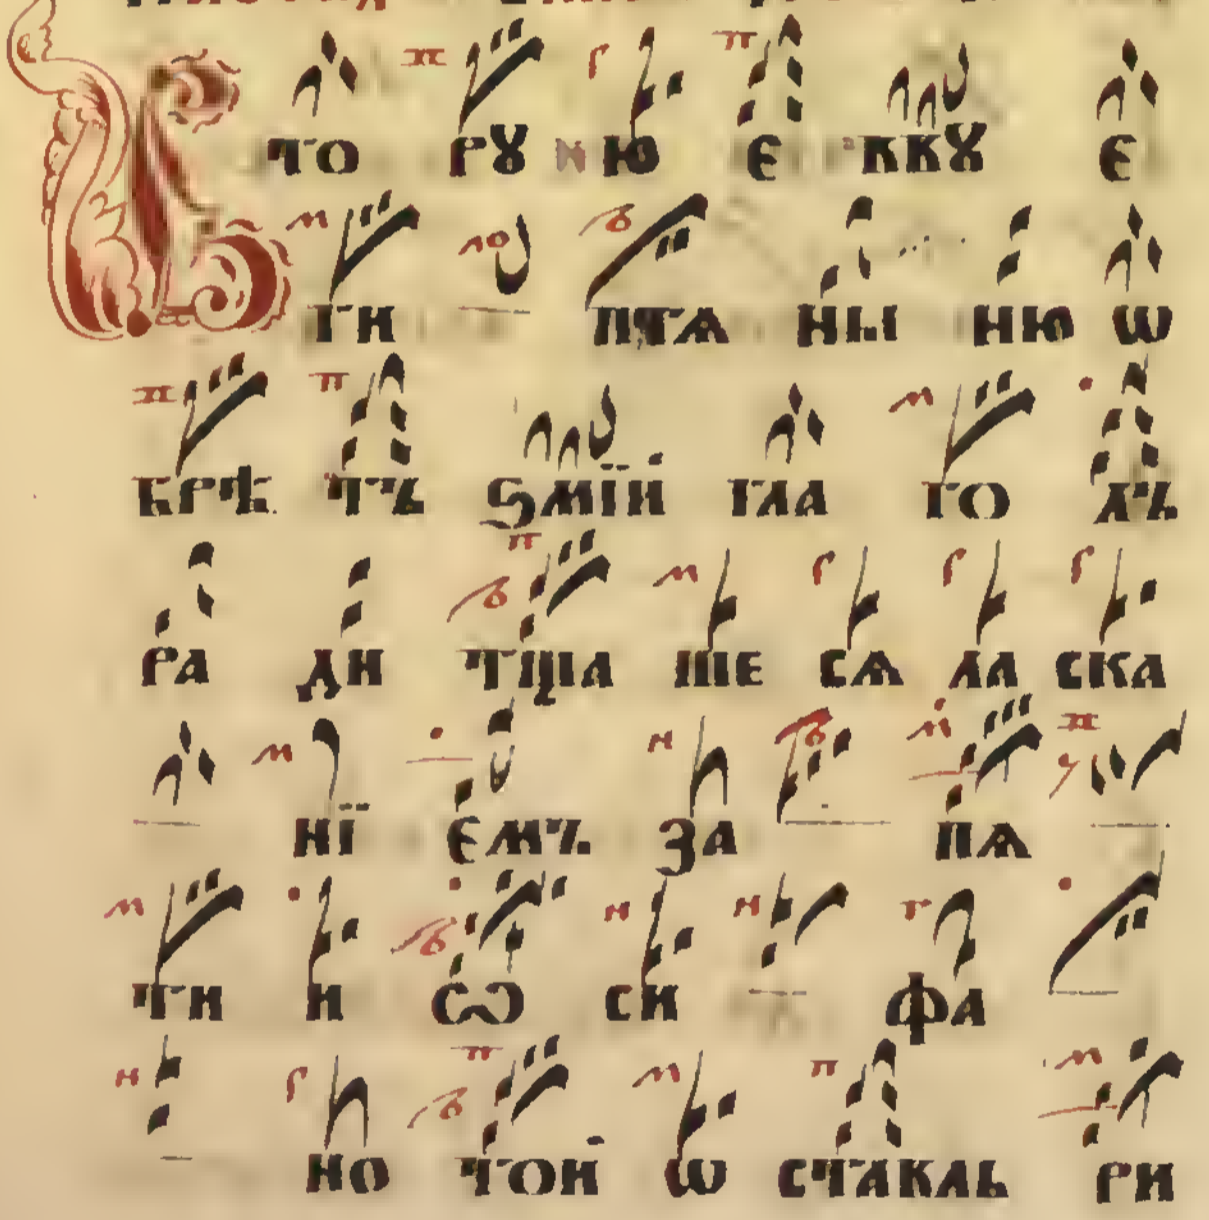 В то рꙋ ю е ввꙋ е
ги птѧ ны ню ѡ
брѣ тъ ѕмїй гла го лъ
ра ди тща ше сѧ ла ска
нї емъ за пѧ
ти и ѡ си фа
но той ѡ ставль ри